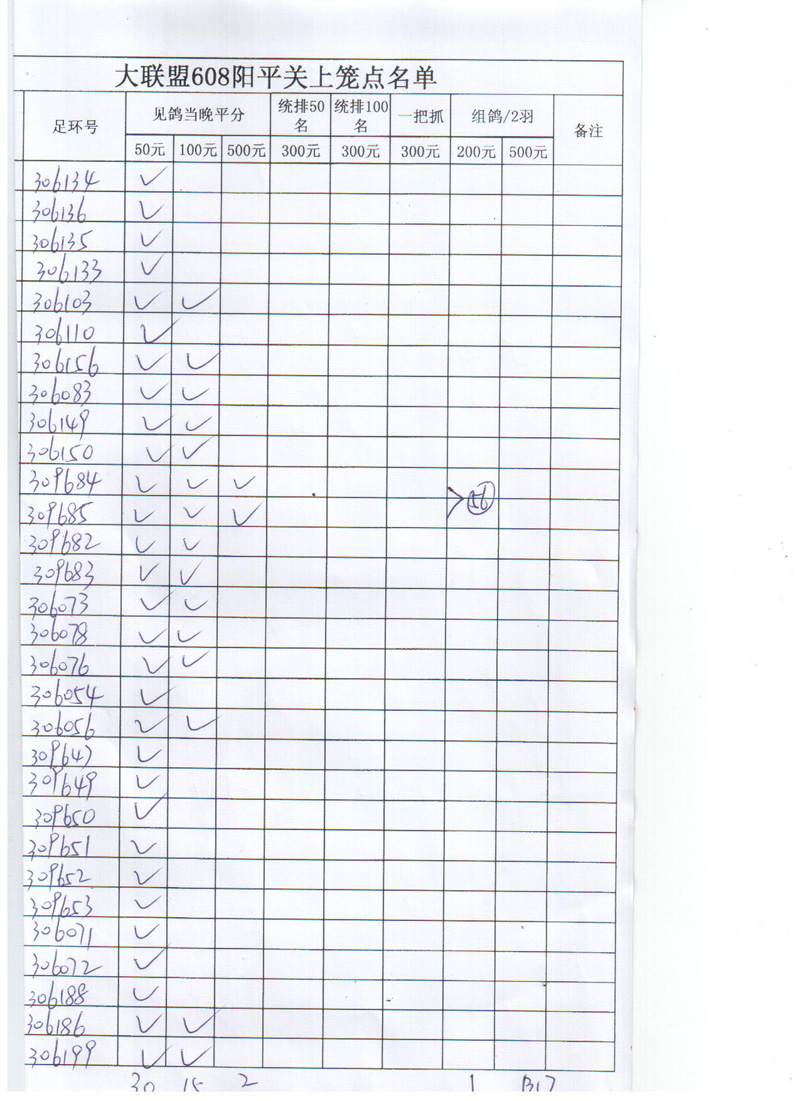 大联盟608阳平关上笼点名单
足环号 见鸽当晚平分 统排50名 统排100名 一把抓 组鸽/2羽 备注
50元 100元 500元 300元 300元 300元 200元 500元
306134 ✓
306136 ✓
306135 ✓
306133 ✓
306103 ✓ ✓
306110 ✓
306156 ✓ ✓
306083 ✓ ✓
306149 ✓ ✓
306150 ✓ ✓
309684 ✓ ✓ ✓
309685 ✓ ✓ ✓
309682 ✓ ✓
309683 ✓ ✓
306073 ✓ ✓
306078 ✓ ✓
306076 ✓ ✓
306054 ✓
306056 ✓ ✓
309647 ✓
309649 ✓
309650 ✓
309651 ✓
309652 ✓
309653 ✓
306071 ✓
306072 ✓
306188 ✓
306186 ✓ ✓
306199 ✓ ✓
30 15 2 1